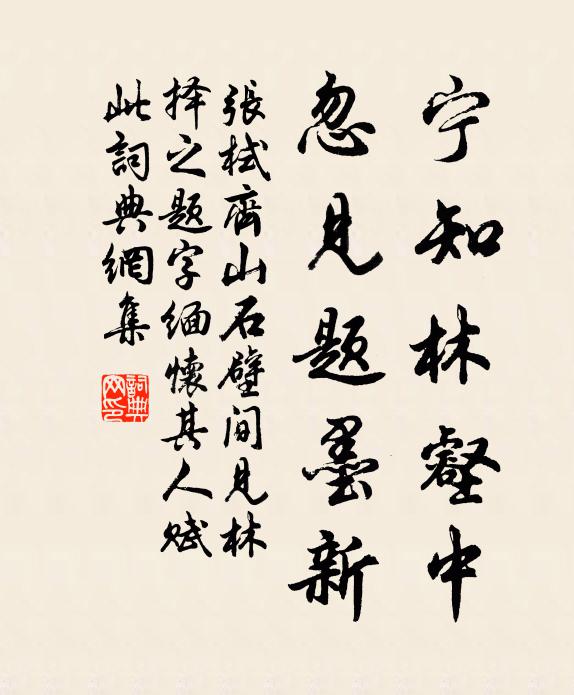 宁知林壑中
忽见题墨新
張栻齊山石壁间見林
择之题字緬懷其人赋
此詞典網集
詞典網印